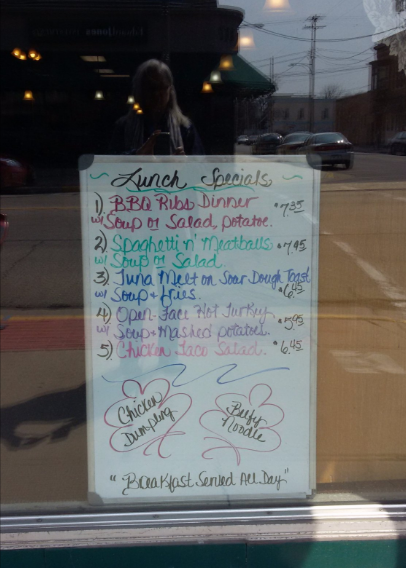 Lunch Specials
1) BBQ Ribs Dinner $7.35
w/ Soup or Salad, potatoe.
2) Spaghetti n' Meatballs $7.45
w/ Soup or Salad.
3) Tuna Melt on Sour Dough Toast
w/ Soup + fries. $6.45
4) Open Face Hot Turkey $5.95
w/ Soup + Mashed potatoes.
5) Chicken Taco Salad. $6.45
Chicken
Dumpling
Beefy
Noodle
"Breakfast Served All Day"